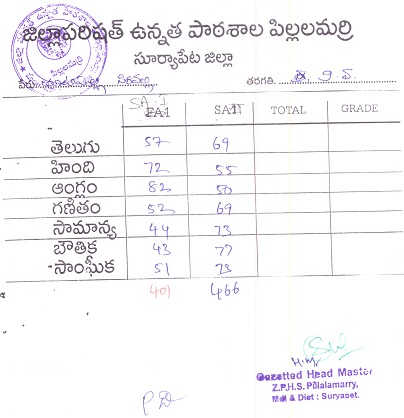 జిల్లాపరిషత్ ఉన్నత పాఠశాల పిల్లలమర్రి
సూర్యాపేట జిల్లా
తరగతి.
SA-I
FA1 SAII TOTAL GRADE
తెలుగు 57 69
హింది 72 55
ఆంగ్లం 82 50
గణితం 52 69
సామాన్య 44 73
బౌతిక 43 77
సాంఘీక 51 73
401 466
H.M
Gazetted Head Master
Z.P.H.S. Pillalamarry,
Mdl & Dist : Suryapet.